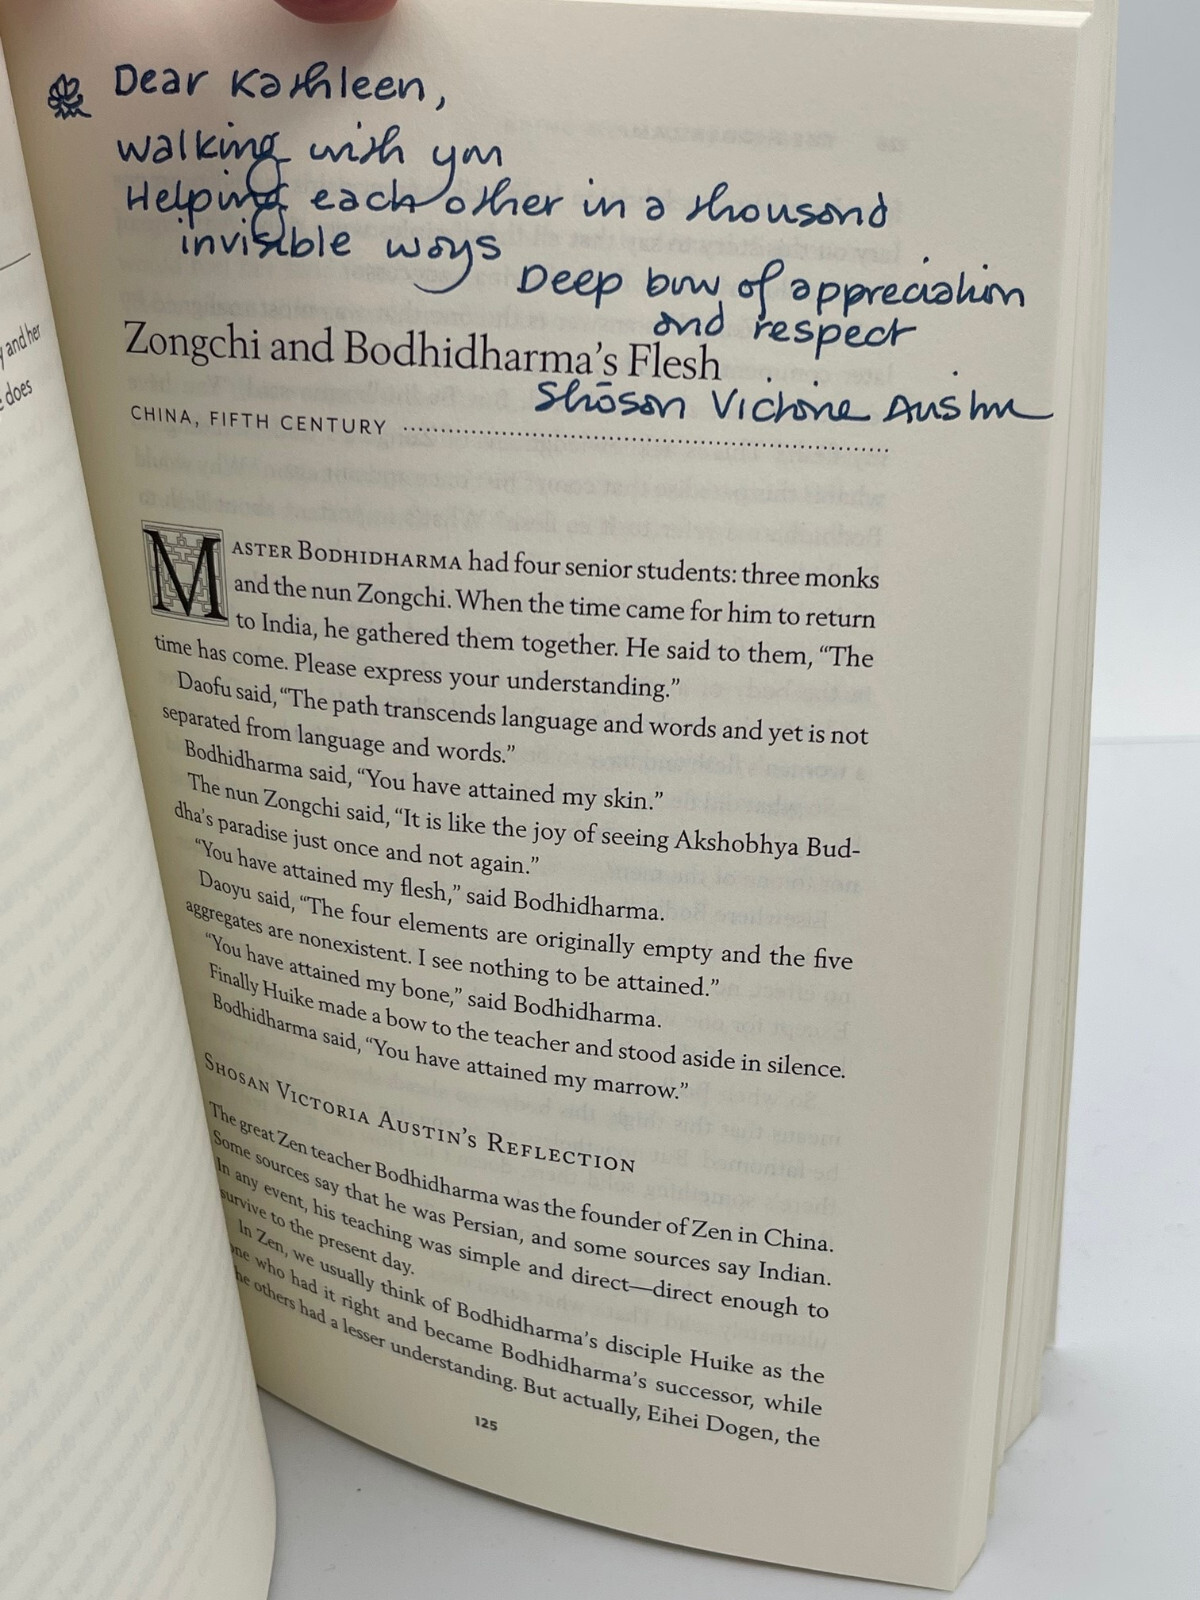 Dear Kathleen,
walking with you
Helping each other in a thousand
invisible ways
Deep bow of appreciation
and respect
Zongchi and Bodhidharma's Flesh
Shōsan Victoria Austin
CHINA, FIFTH CENTURY
y and her
e does
MASTER BODHIDHARMA had four senior students: three monks
and the nun Zongchi. When the time came for him to return
to India, he gathered them together. He said to them, “The
time has come. Please express your understanding.”
Daofu said, “The path transcends language and words and yet is not
separated from language and words.”
Bodhidharma said, “You have attained my skin.”
The nun Zongchi said, “It is like the joy of seeing Akshobhya Bud-
dha's paradise just once and not again.”
“You have attained my flesh,” said Bodhidharma.
Daoyu said, “The four elements are originally empty and the five
aggregates are nonexistent. I see nothing to be attained.”
“You have attained my bone,” said Bodhidharma.
Finally Huike made a bow to the teacher and stood aside in silence.
Bodhidharma said, “You have attained my marrow.”
SHOSAN VICTORIA AUSTIN'S REFLECTION
The great Zen teacher Bodhidharma was the founder of Zen in China.
Some sources say that he was Persian, and some sources say Indian.
In any event, his teaching was simple and direct—direct enough to
survive to the present day.
In Zen, we usually think of Bodhidharma's disciple Huike as the
one who had it right and became Bodhidharma's successor, while
he others had a lesser understanding. But actually, Eihei Dogen, the
125